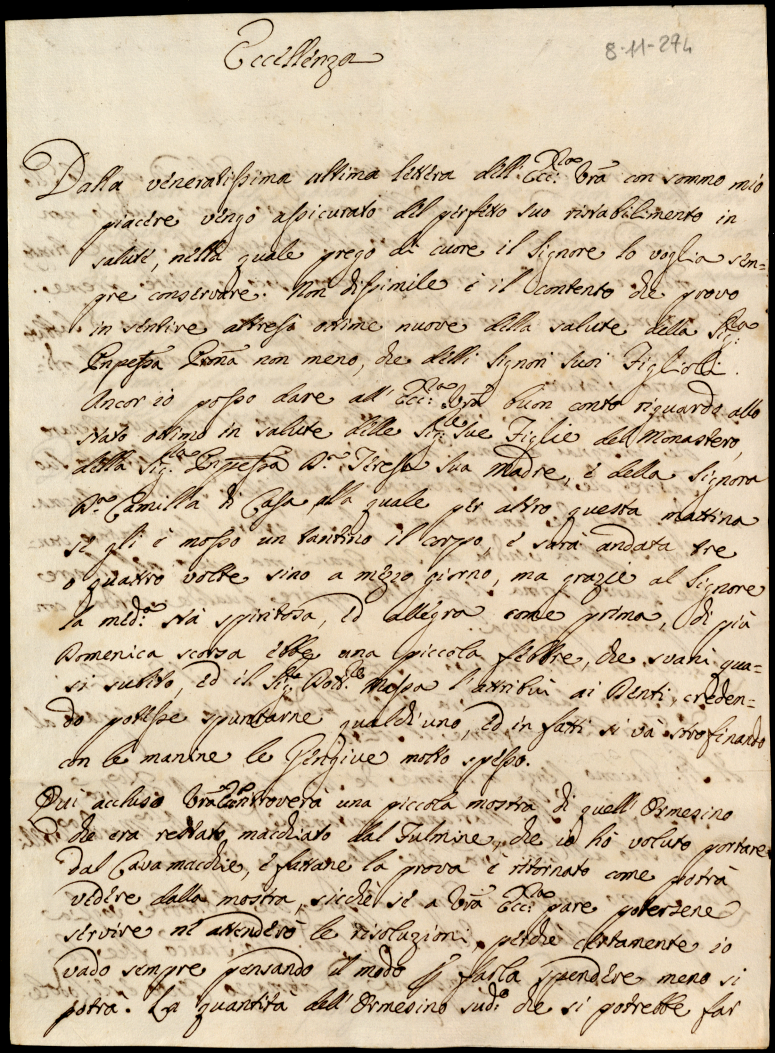 8-11-274
Eccellenza
Dalla veneratissima ultima lettera dell' Ecc:za Vra con sommo mio
piacere vengo assicurato del perfetto suo ristabilimento in
salute, nella quale prego di cuore il Signore lo voglia sem=
pre conservare. Non dissimile è il contento che provo
in sentire altresì ottime nuove della salute della Sig:ra
Pnpessa Prona non meno, che delli Signori suoi Figlioli.
Ancor io posso dare all' Ecc:za Vra buon conto riguardo allo
stato ottimo in salute delle Sig:re sue Figlie del Monastero,
della Sig:ra Pnpessa Da Teresa sua Madre, e della Signora
Da Camilla di Casa alla quale per altro questa mattina
se gli è mosso un tantino il corpo, e sarà andata tre
o quattro volte sino a mezzo giorno, ma grazie al Signore
la med:a stà spiritosa, ed allegra come prima, di più
Domenica scorsa ebbe una piccola febbre, che svanì qua=
si subito, ed il Sig:e Dott:re Massa l'attribuì ai Denti, creden=
do potesse spuntarne qualch'uno, ed in fatti si và strofinando
con le manine le Gengive molto spesso.
Qui accluso Vra troverà una piccola mostra di quell' Ormesino
che era restato macchiato dal Fulmine, che io hò voluto portare
dal Cavamacchie, e fattane la prova è ritornato come potrà
vedere dalla mostra, sicchè se a Vra Ecc:za pare potersene
servire ne attenderò le risoluzioni, perchè certamente io
vado sempre pensando il modo p farla spendere meno si
potrà. La quantità dell' Ormesino sud:o che si potrebbe far